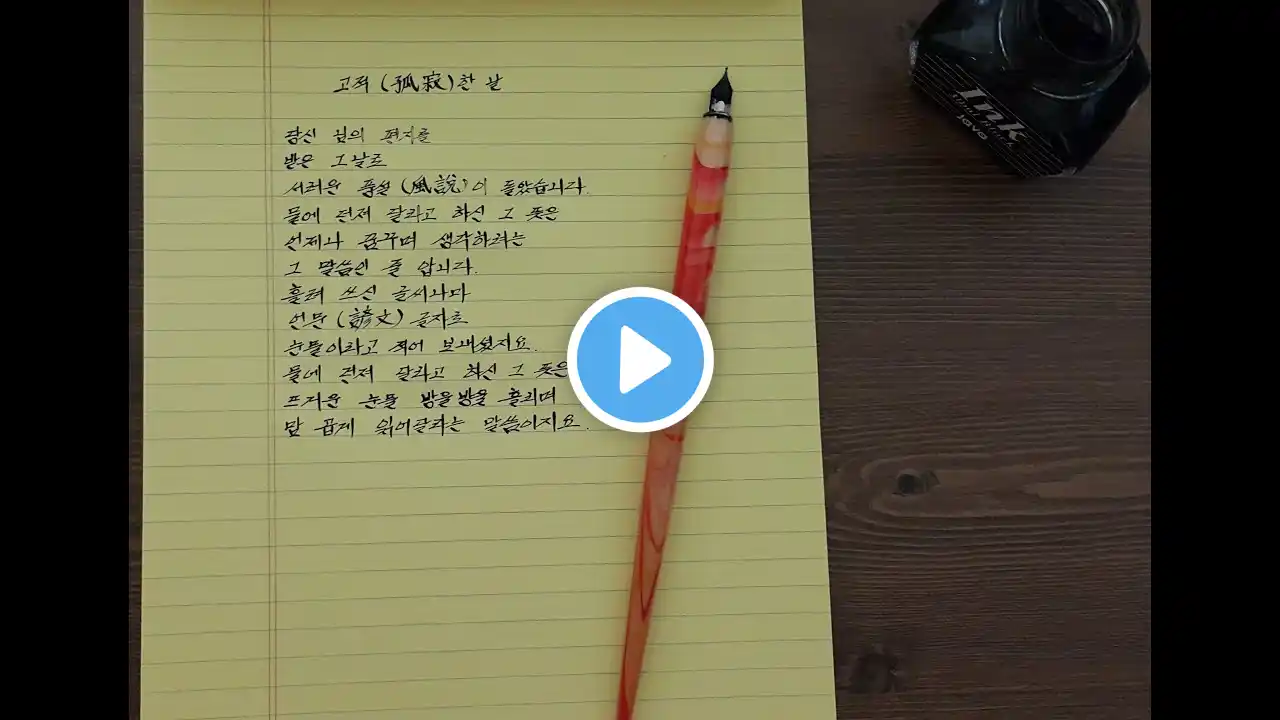 고적 (孤寂)한 날
당신 님의 편지를
받은 그날로
서러운 풍설 (風說)이 돌았습니다.
물에 던져 달라고 하신 그 뜻은
언제나 꿈꾸며 생각하라는
그 말씀인 줄 압니다.
흘려 쓰신 글씨나마
언문 (諺文) 글자로
눈물이라고 적어 보내셨지요.
물에 던져 달라고 하신 그 뜻은
뜨거운 눈물 방울방울 흘리며
맘 곱게 읽어달라는 말씀이지요.
Ink
JAVO